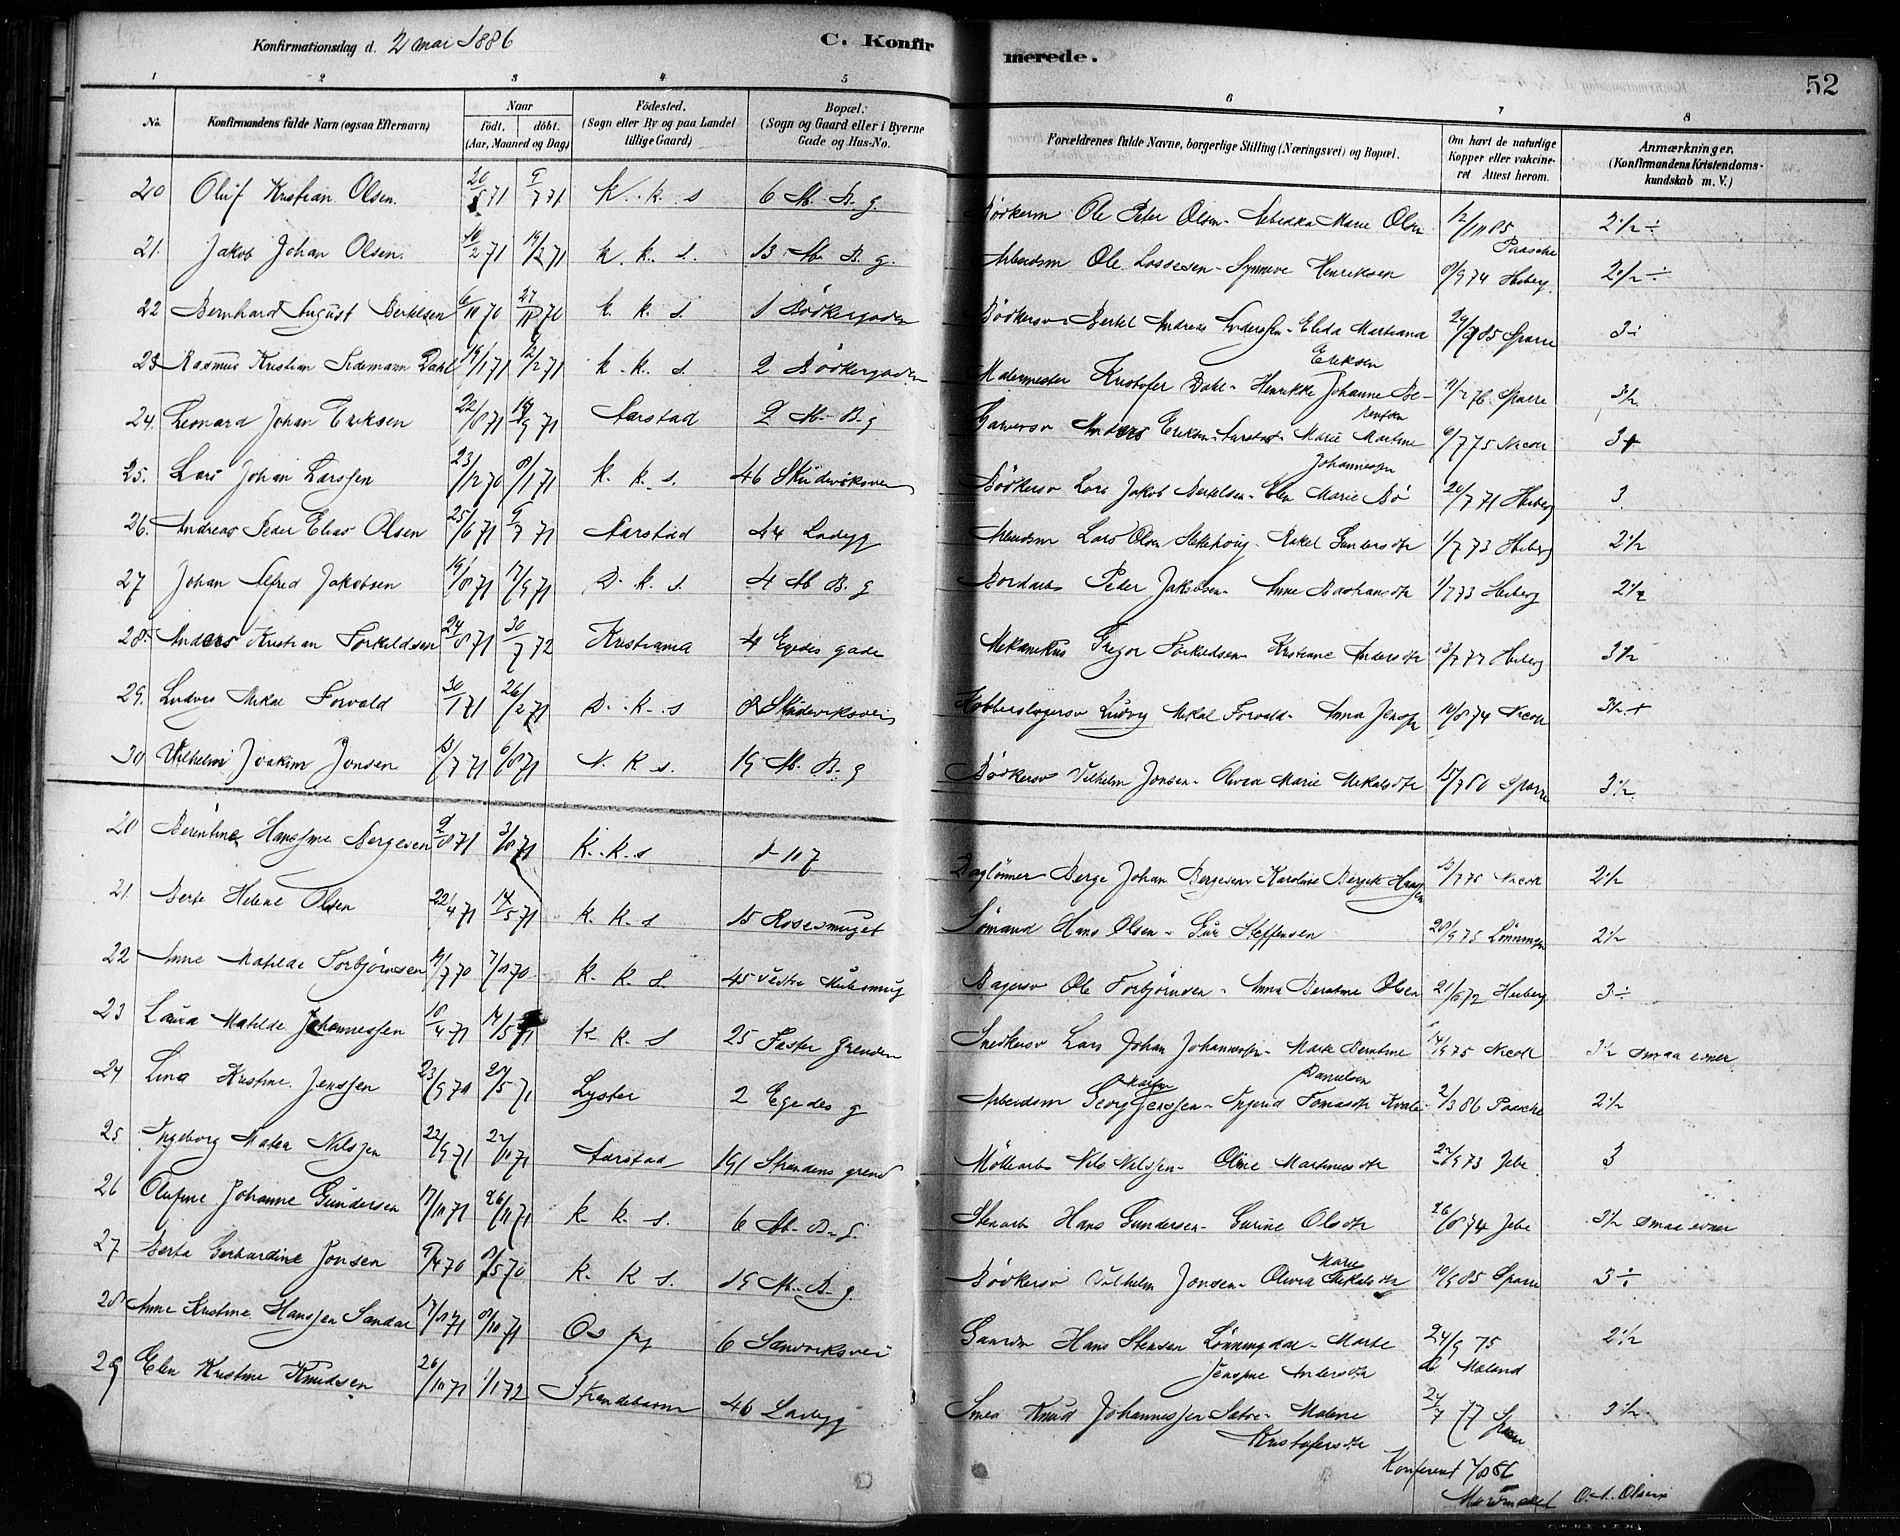 Konfirmationsdag d. 2 mai 1886
C. Konfirmerede.
52
1 2 3 4 5 6 7 8
No. Konfirmandens fulde Navn (ogsaa Efternavn) Naar født. døbt. (Aar, Maaned og Dag) Fødested. (Sogn eller By og paa Landet tillige Gaard) Bopæl. (Sogn og Gaard eller i Byerne Gade og Hus-No. Forældrenes fulde Navne, borgerlige Stilling (Næringsvei) og Bopæl. Om havt de naturlige Kopper eller vakcineret. Attest herom. Anmærkninger. (Konfirmandens Kristendomskundskab m. V.)
20 Oluf Kristian Olsen. K. k. s 6 M. B. g Bödkerm Ole Peter Olsen - Marie Olsen Paasche 2½ ÷
21. Jakob Johan Olsen. 10/2 71 19/2 71 K. k. s. 13 M. B. g. Arbeidsm Ole Lassesen - Synneve Henriksen 9/9 74 Heiberg 2½ ÷
22 Bernhard August Bertelsen 6/10 70 27/11 70 k. k. s. 1 Bödkergaden Bödkersv Bertel Andreas Anderssen - Elida Martiana Eriksen Sparre 3 ÷
23 Rasmus Kristian Dahl 2/2 71 k. k. s 2 Bödkergaden Malermester Kristofer Dahl - Henrikke Johanne Berentsen 11/2 76 Sparre 3½
24. Leonard Johan Eriksen 22/8 71 Aarstad 2 M. B. g Garversv Anders Eriksen Aarstad - Marie Martine Johannessen 6/7 75 Nicoll 3+
25. Lars Johan Larssen 23/12 70 8/1 71 k. k. s. 46 Skudeviksvei Bödkersv Lars Jakob Bertelsen - Elen Marie Bö 20/7 71 Heiberg 3.
26. Andreas Peder Elias Olsen 25/6 71 9/7 71 Aarstad 44 Ladeg Arbeidsm Lars Olsen - Rakel Gundersdtr 1/7 73 Heiberg 2½
27 Johan Alfred Jakobsen 19/8 71 17/9 71 D. k. s. 4 M. B. g Bordarb Peder Jakobsen - Anne Bastiansdtr 1/7 73 Heiberg 2½
28. Anders Kristian Torkildsen 24/8 71 30/7 72 Kristiania 4 Egedes gade Mekanikus Gregor Torkildsen - Kristiane Andersdtr 13/7 77 Heiberg 3½
29. Ludvig Mikal Forvald 30/1 71 26/2 71 D. k. s 8 Skudeviksvei Kobberslagersv Ludvig Mikal Forvald - Anna Jenssen 10/8 74 Nicoll 3½ +
30 Vilhelm Joakim Jonsen 13/7 71 6/8 71 N. K. s. 19 M. B. g Bödkersv Vilhelm Jonsen - Oliva Marie Mikalsdtr 15/7 80 Sparre 3½
20 Berentine Hansine Bergesen 2/8 71 K. K. s Daglönner Berge Johan Bergesen - Karoline Bergitte Hanssen Nicoll 2½
21. Berte Helene Olsen 22/4 71 14/5 71 K. k. s 15 Rosesmuget Sömand Hans Olsen - Guri Steffensen Lönningen 2½
22 Anne Matilde Torbjörnsen 7/8 70 K. K. s. 45 Vestre Mulesmug Bagersv Ole Torbjörnsen - Anna Berntine Olsen 21/6 72 Heiberg 3 ÷
23 Laura Matilde Johannessen 10/4 71 14/5 71 K. K. S 25 Faster grenden Snedkersv Lars Johan Johannessen - Marte Berntine Danielsen Nicoll 3½ smaa evner
24 Lina Kristine Jenssen 23/9 70 27/5 71 Lyster 2 Egedes g Arbeidsm Georg Jenssen - Ingerid Tomasdtr Kvale 2/3 86 Paasche 2½
25 Ingeborg Matea Nilssen 22/9 71 22/10 71 Aarstad 191 Strandens grend Möllearb Nils Nilssen - Oline Martinusdtr 22/9 73 Jebe 3
26 Olufine Johanne Gundersen 17/10 71 26/11 71 k. k. s. 6 M. B. g. Stenarb Hans Gundersen - Gurine Olsdtr 26/8 74 Jebe 3½ smaa evner
27 Berta Gerhardine Jonsen 9/4 70 8/5 70 K. K s. 19 M. B. g. Bödkersv Vilhelm Jonsen - Olivia Marie Mikalsdtr 10/9 85 Sparre 3 ÷
28 Anne Kristine Hanssen Sandal 17/8 71 8/10 71 Os 6 Sandviksvei Gaardm Hans Stensen Lönningdal - Marte Jensine Andersdtr 24/9 75 Moland 2½
29 Elen Kristine Knudsen 26/10 71 1/1 72 Strandebarm 46 Ladeg Smed Knud Johannessen Sætre - Malene Kristofersdtr 24/7 77 Sparre 3½
Konfereret 7/8 86
O. A. Olsen